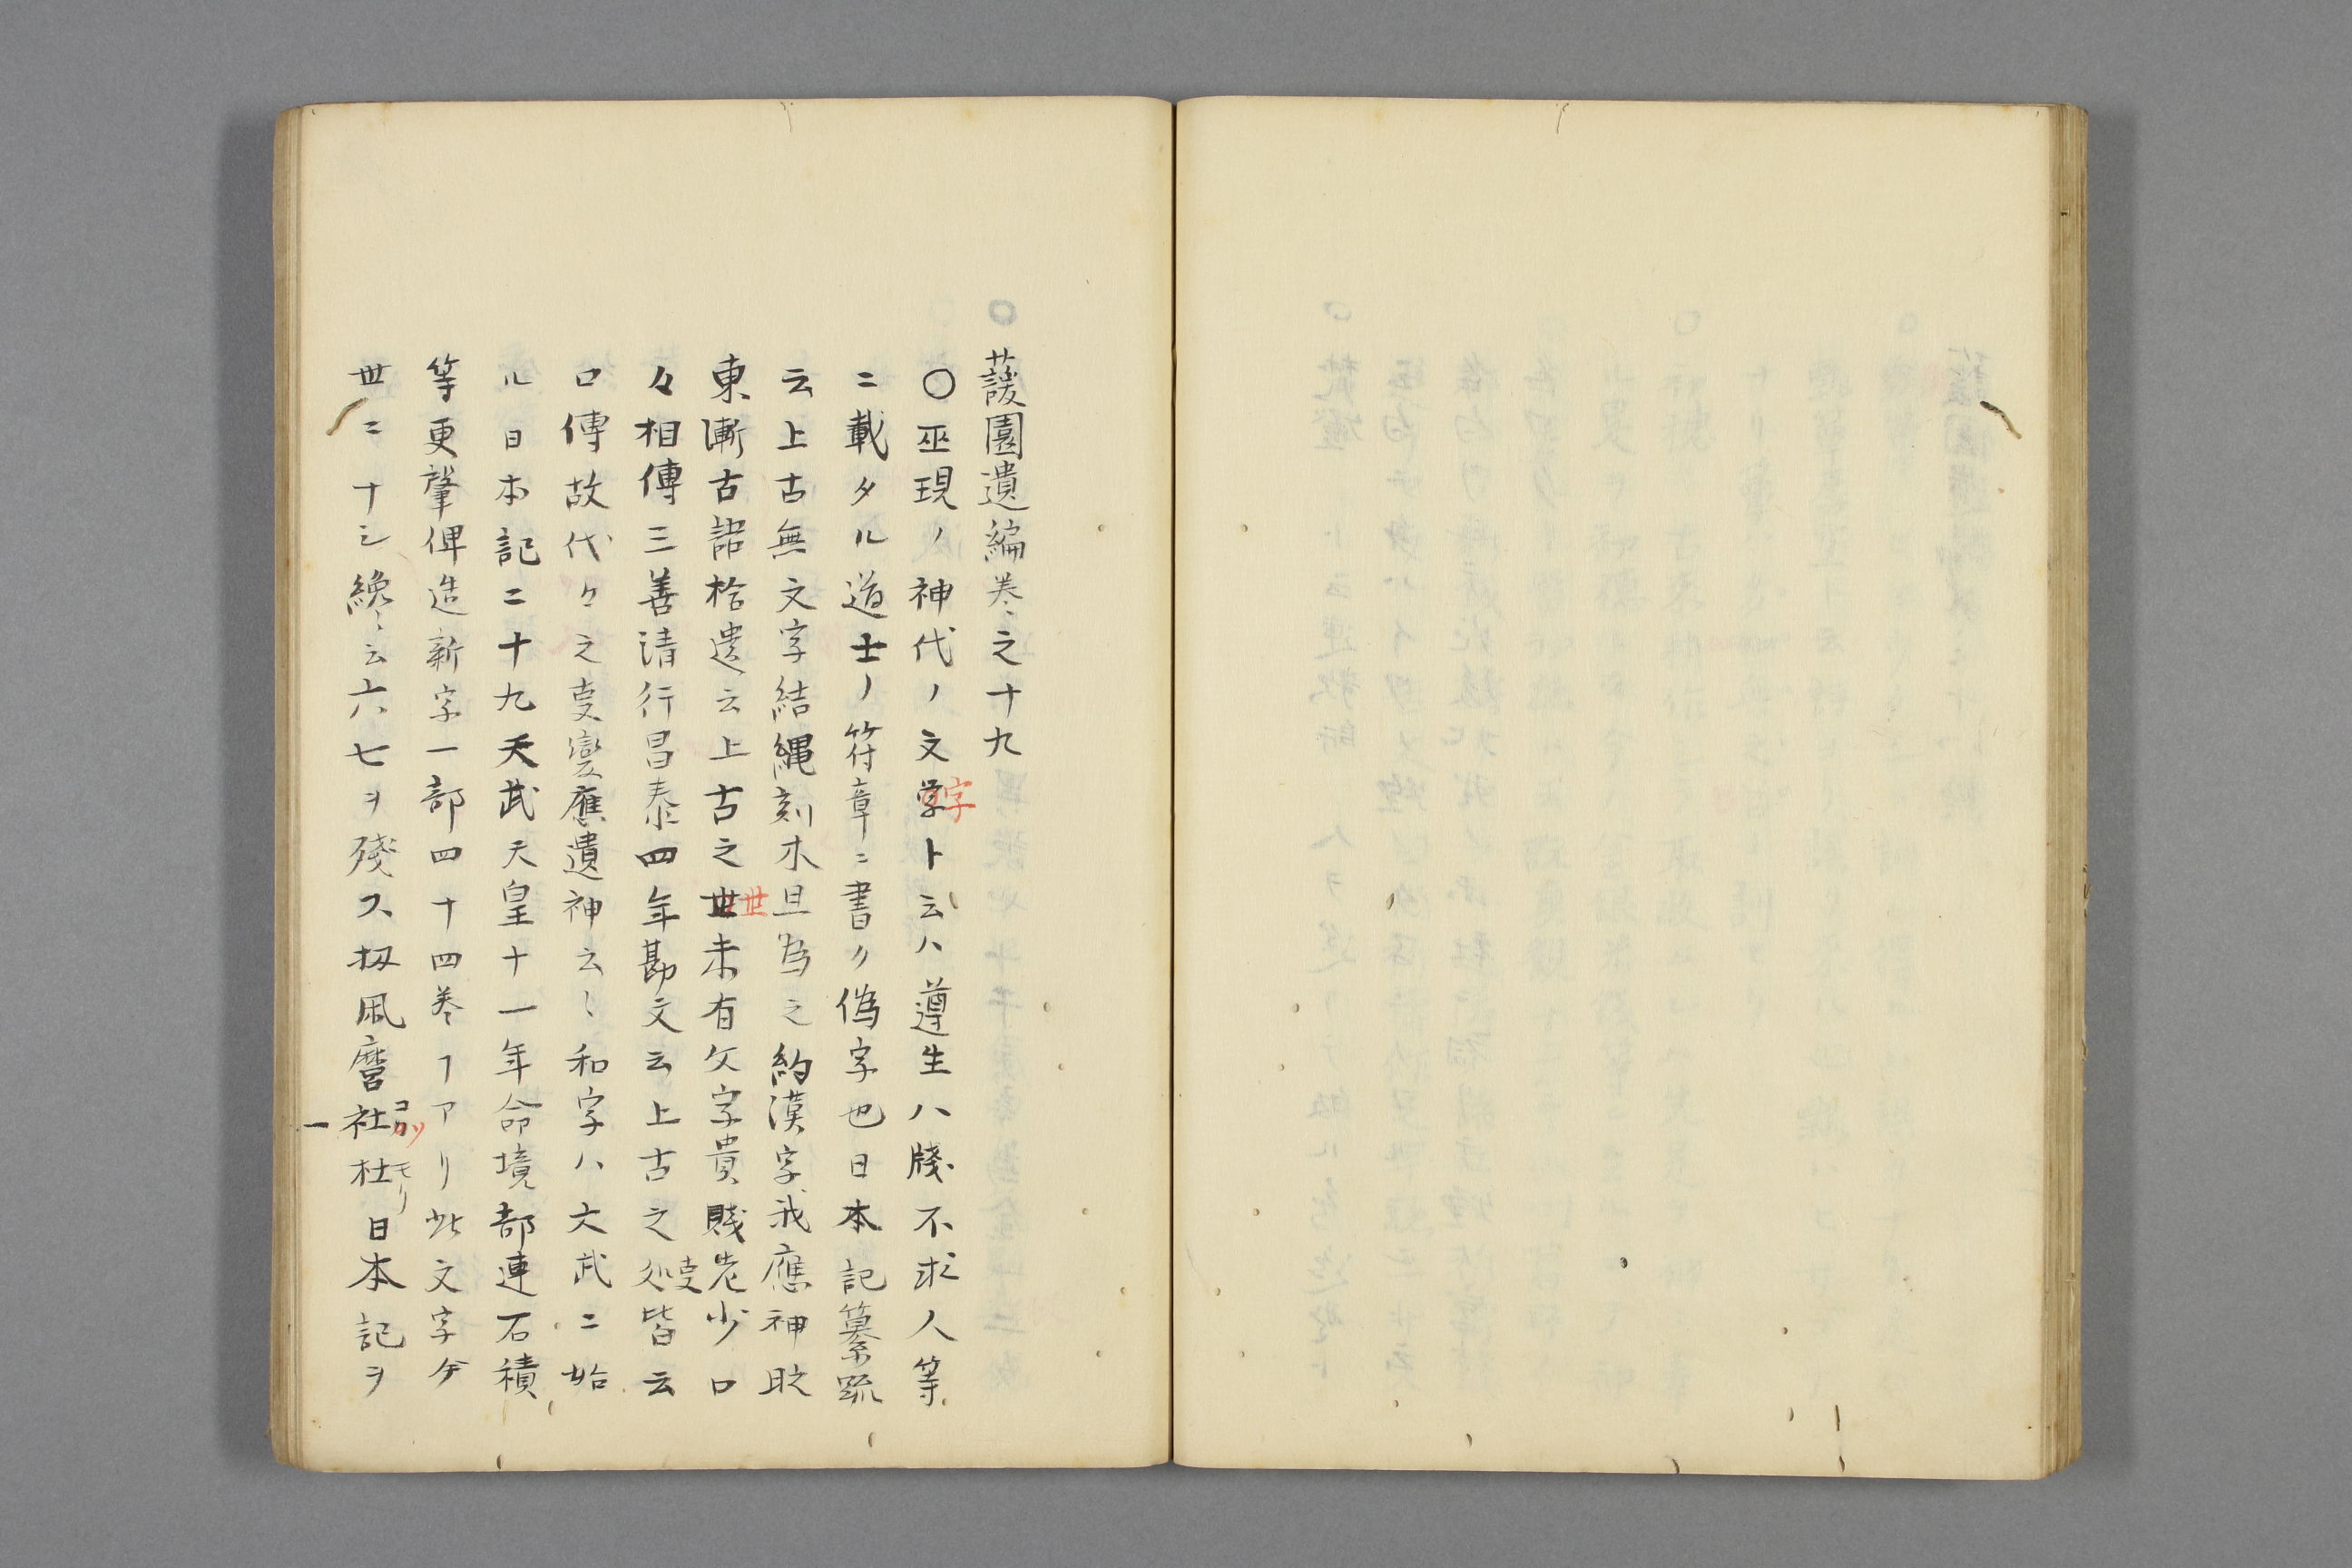 蘐園遺編巻之十九
〇巫現ノ神代ノ文学字ト云ハ遵生八牋不求人等
ニ載タル道士ノ符章ニ書ク偽字也日本記纂䟽
云上古無文字結縄刻木旦為之約漢字我應神
東漸古語拾遺云上古之世世未有文字貴賤老少口
々相傳三善清行昌泰四年勘文云上古之㕝皆云
口傳故代々之㕝變應遺神云〻和字ハ大武ニ始
ル日本記ニ十九天武天皇十一年命境部連石積
等更肇俾造新字一部四十四巻ヿアリ此文字ゲ
世ニナシ纔ニ云六七ヲ殘ス扨凩麿社コカツ杜モリ日本記ヲ
一